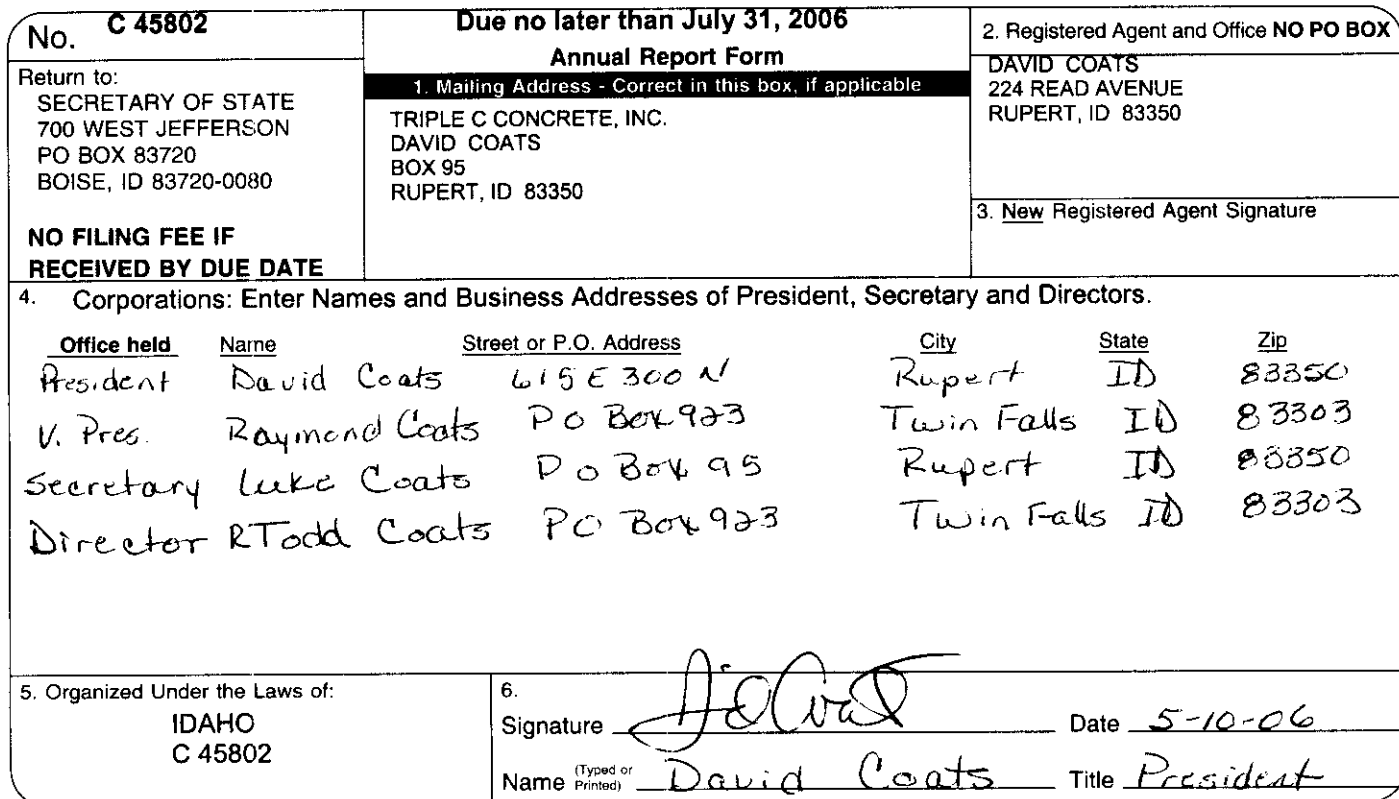 No. C 45802
Return to:
SECRETARY OF STATE
700 WEST JEFFERSON
PO BOX 83720
BOISE, ID 83720-0080
NO FILING FEE IF
RECEIVED BY DUE DATE
Due no later than July 31, 2006
Annual Report Form
1. Mailing Address - Correct in this box, if applicable
TRIPLE C CONCRETE, INC.
DAVID COATS
BOX 95
RUPERT, ID 83350
2. Registered Agent and Office NO PO BOX
DAVID COATS
224 READ AVENUE
RUPERT, ID 83350
3. New Registered Agent Signature
4. Corporations: Enter Names and Business Addresses of President, Secretary and Directors.
Office held Name Street or P.O. Address City State Zip
President David Coats 615 E 300 N Rupert ID 83350
V. Pres. Raymond Coats P O Box 923 Twin Falls ID 83303
Secretary Luke Coats P O Box 95 Rupert ID 83350
Director RTodd Coats PO Box 923 Twin Falls ID 83303
5. Organized Under the Laws of:
IDAHO
C 45802
6.
Signature Date 5-10-06
Name (Typed or Printed) David Coats Title President